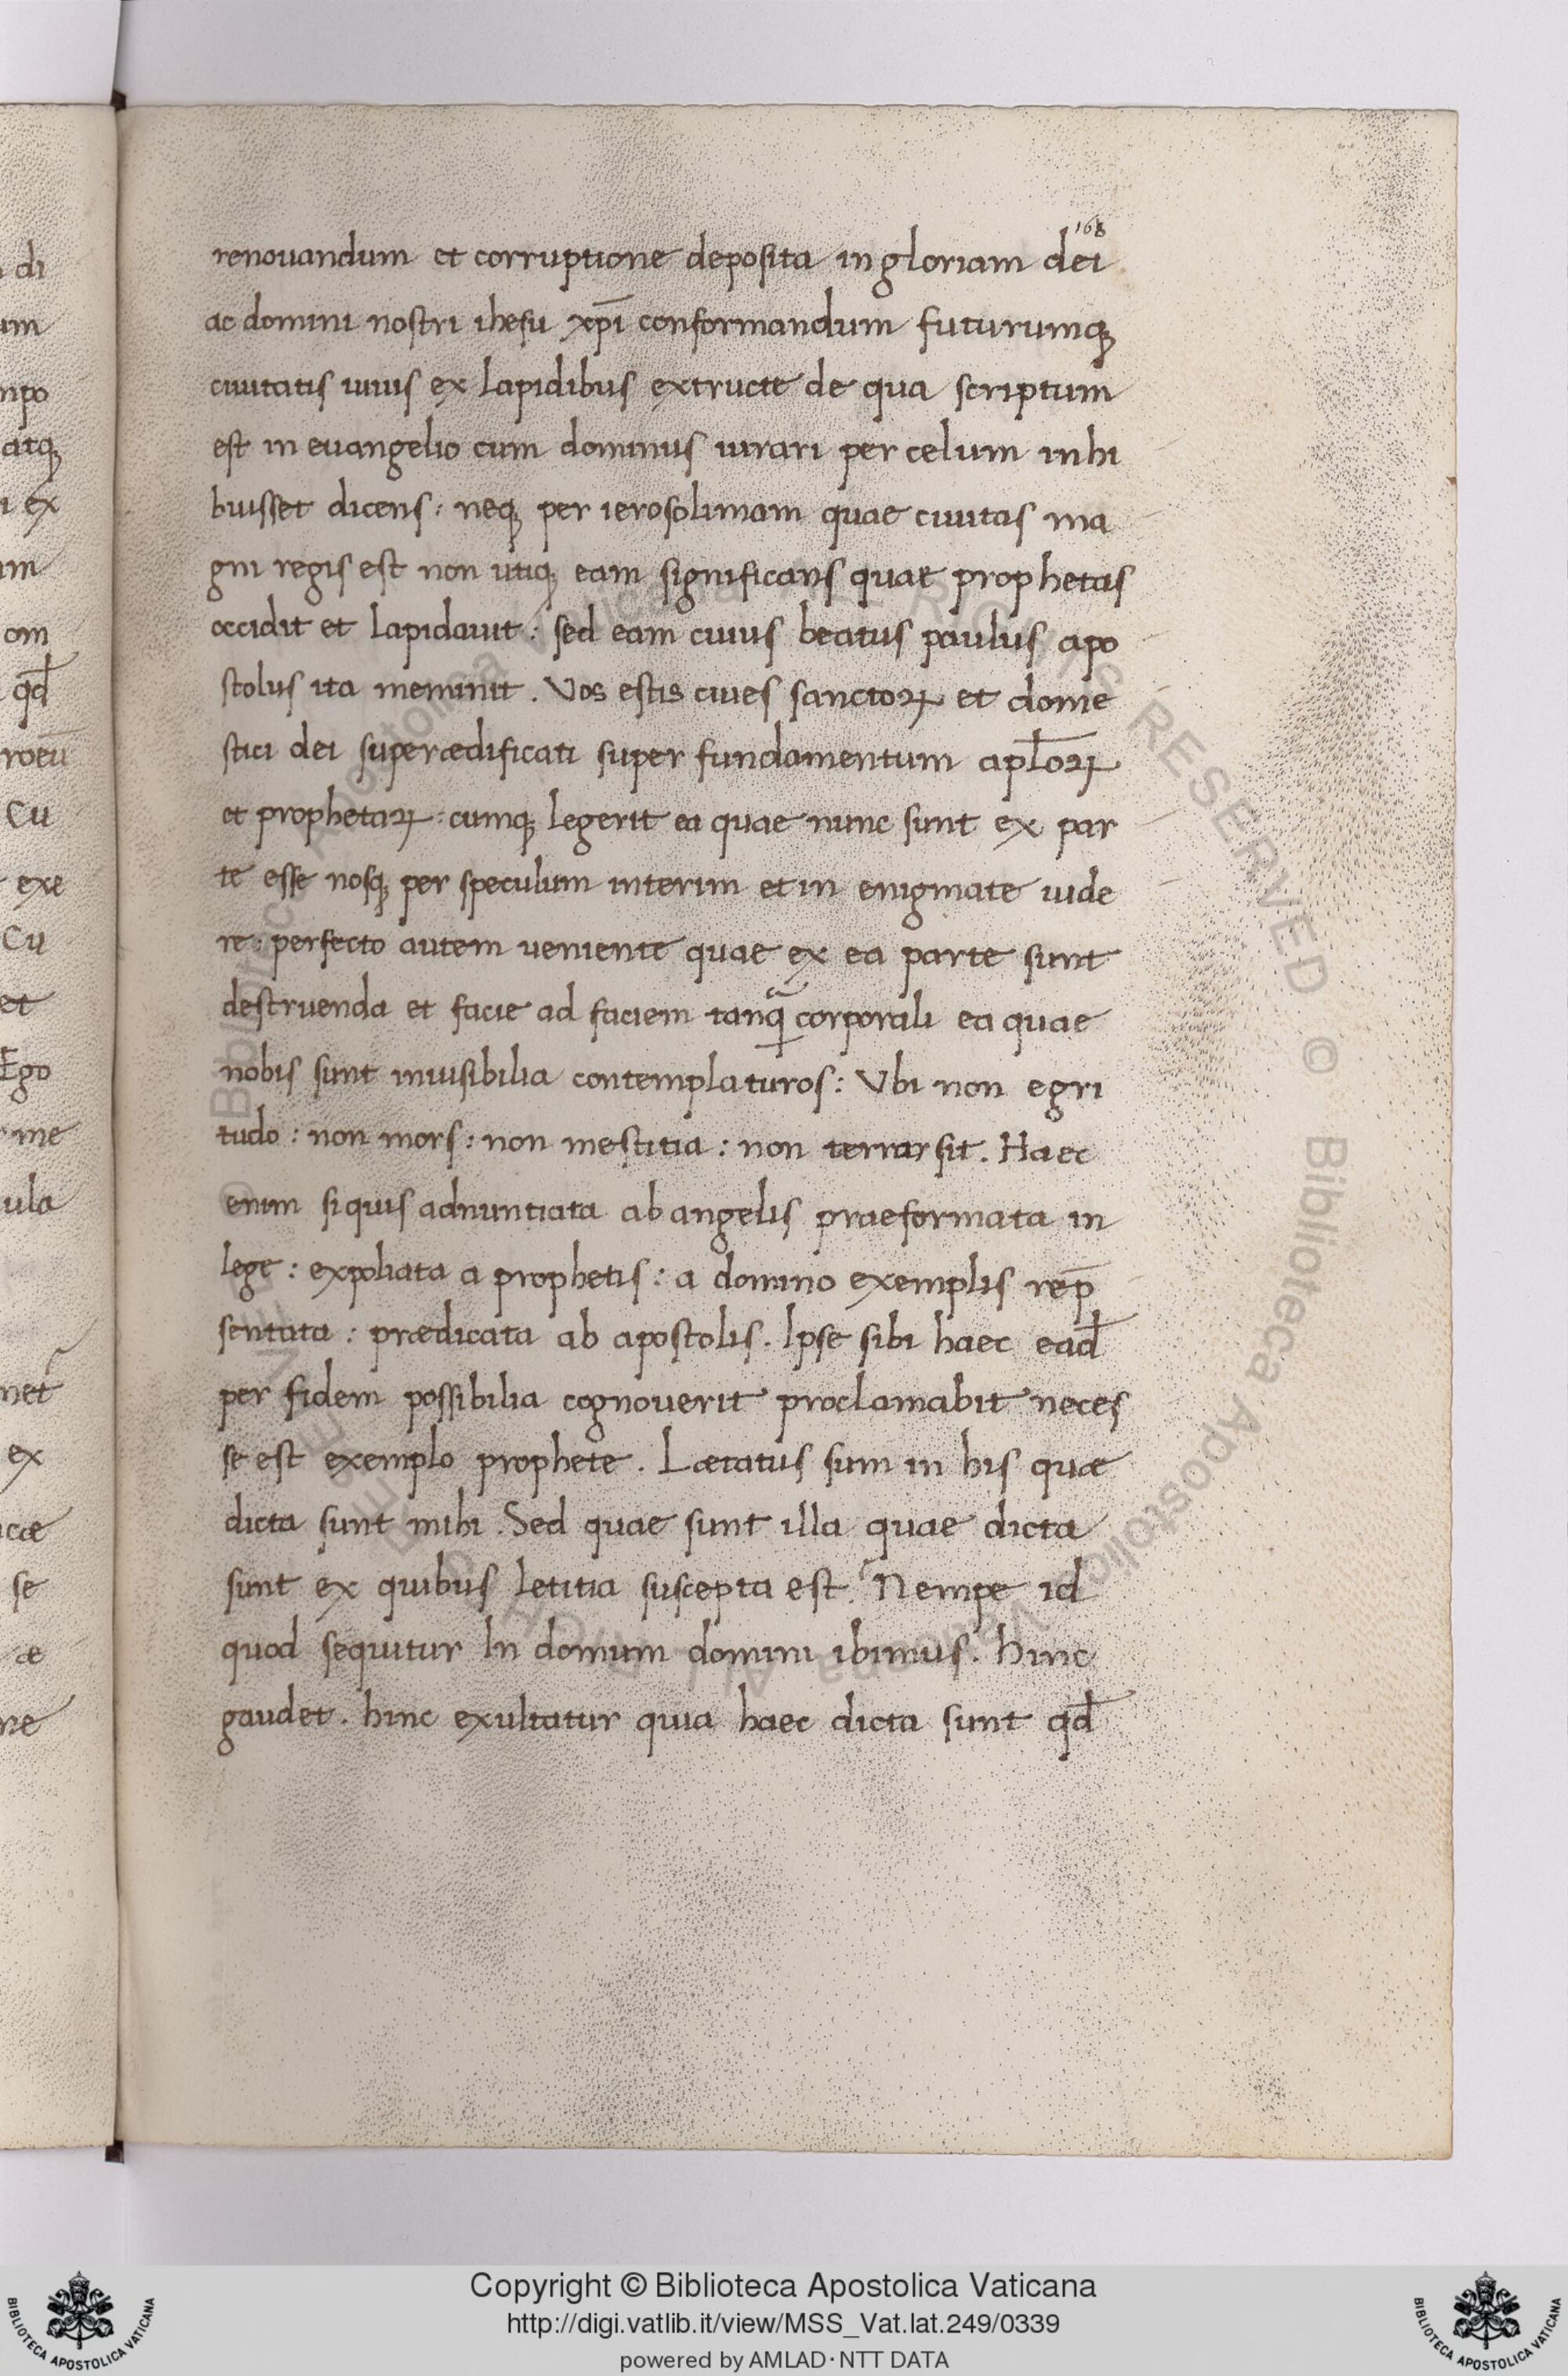 168
renouandum et corruptione deposita in gloriam dei
ac domini nostri ihesu xp̄i conformandum futurumq;
ciuitatis uiuis ex lapidibus extructe de qua scriptum
est in euangelio cum dominus iurari per celum inhi
buisset dicens : neq; per ierosolimam quae ciuitas ma
gni regis est non utiq; eam significans quae prophetas
occidit et lapidauit : sed eam cuius beatus paulus apo
stolus ita meminit . Vos estis ciues sanctoꝝ et dome
stici dei superædificati super fundamentum apl̄oꝝ
et prophetaꝝ : cumq; legerit ea quae nunc sunt ex par
te esse nosq; per speculum interim et in enigmate uide
re : perfecto autem ueniente quae ex ea parte sunt
destruenda et facie ad faciem tanq̃ corporali ea quae
nobis sunt inuisibilia contemplaturos : Vbi non egri
tudo : non mors : non mestitia : non terrar sit . Haec
enim siquis adnuntiata ab angelis praeformata in
lege : expoliata a prophetis : a domino exemplis rep̄
sentata : prædicata ab apostolis . Ipse sibi haec ead̄
per fidem possibilia cognouerit proclamabit neces
se est exemplo prophete . Lætatus sum in his quæ
dicta sunt mihi . Sed quae sunt illa quae dicta
sunt ex quibus letitia suscepta est ? Nempe id
quod sequitur In domum domini ibimus . hinc
gaudet . hinc exultatur quia haec dicta sunt qd̄
di
um
npo
atq;
i ex
um
om
qd̄
roeū
Cu
exe
Cu
et
Ego
me
ula
net
ex
icæ
se
æ
ne
© Biblioteca Apostolica Vaticana ALL RIGHTS RESERVED
Copyright © Biblioteca Apostolica Vaticana
http://digi.vatlib.it/view/MSS_Vat.lat.249/0339
powered by AMLAD · NTT DATA
BIBLIOTECA APOSTOLICA VATICANA
BIBLIOTECA APOSTOLICA VATICANA